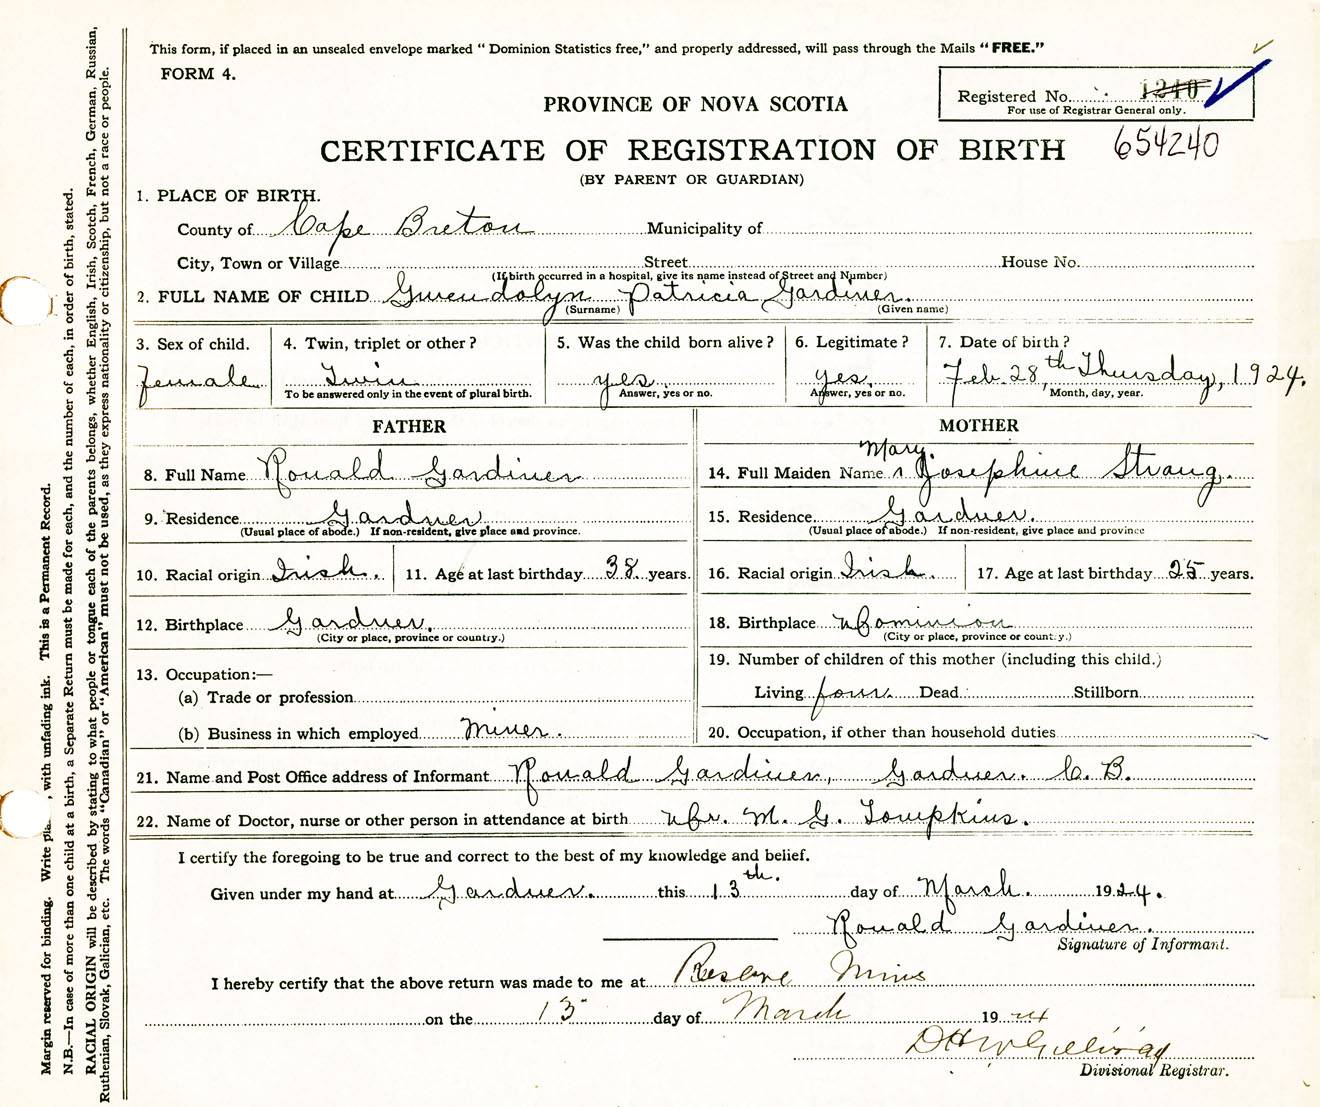 This form, if placed in an unsealed envelope marked "Dominion Statistics free," and properly addressed, will pass through the Mails "FREE."
FORM 4.
Registered No. 1240
For use of Registrar General only.
PROVINCE OF NOVA SCOTIA
654240
CERTIFICATE OF REGISTRATION OF BIRTH
(BY PARENT OR GUARDIAN)
1. PLACE OF BIRTH.
County of Cape Breton Municipality of
City, Town or Village Street House No.
(If birth occurred in a hospital, give its name instead of Street and Number)
2. FULL NAME OF CHILD Gwendolyn Patricia Gardiner.
(Surname) (Given name)
3. Sex of child. 4. Twin, triplet or other? 5. Was the child born alive? 6. Legitimate? 7. Date of birth?
female Twin yes. yes. Feb. 28,th Thursday, 1924.
To be answered only in the event of plural birth. Answer, yes or no. Answer, yes or no. Month, day, year.
FATHER
8. Full Name Ronald Gardiner
9. Residence Gardner
(Usual place of abode.) If non-resident, give place and province.
10. Racial origin Irish. 11. Age at last birthday 38 years.
12. Birthplace Gardner.
(City or place, province or country.)
13. Occupation:—
(a) Trade or profession
(b) Business in which employed Miner.
MOTHER
Mary.
14. Full Maiden Name Josephine Strang.
15. Residence Gardner.
(Usual place of abode.) If non-resident, give place and province
16. Racial origin Irish. 17. Age at last birthday 25 years.
18. Birthplace Dominion
(City or place, province or country.)
19. Number of children of this mother (including this child.)
Living four Dead Stillborn
20. Occupation, if other than household duties
21. Name and Post Office address of Informant Ronald Gardiner, Gardner. C. B.
22. Name of Doctor, nurse or other person in attendance at birth Dr. M. G. Tompkins.
I certify the foregoing to be true and correct to the best of my knowledge and belief.
Given under my hand at Gardner. this 13th. day of March. 1924.
Ronald Gardiner.
Signature of Informant.
I hereby certify that the above return was made to me at Reserve Mines
on the 13 day of March 1924
Divisional Registrar.
Margin reserved for binding. Write with unfading ink. This is a Permanent Record.
N.B.—In case of more than one child at a birth, a Separate Return must be made for each, and the number of each, in order of birth, stated.
RACIAL ORIGIN will be described by stating to what people or tongue each of the parents belongs, whether English, Irish, Scotch, French, German, Russian,
Ruthenian, Slovak, Galician, etc. The words "Canadian" or "American" must not be used, as they express nationality or citizenship, but not a race or people.